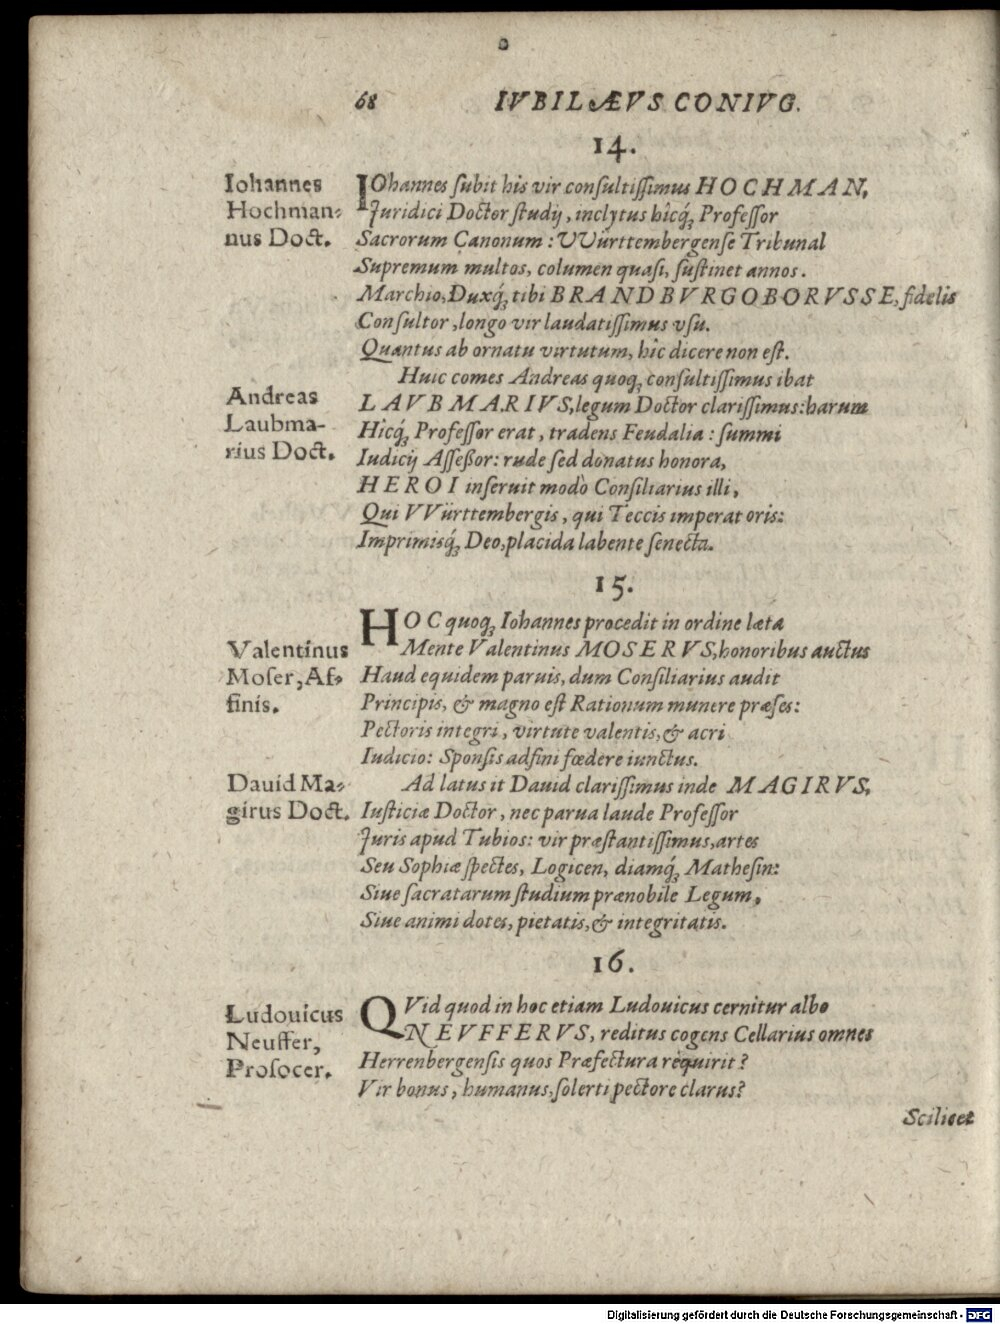 68 IVBILÆVS CONIVG.
14.
Iohannes
Hochman-
nus Doct.
IOhannes ſubit his vir conſultiſſimus HOCHMAN,
Juridici Doctor ſtudij, inclytus hîcq́ꝫ Profeſſor
Sacrorum Canonum: VVürttembergenſe Tribunal
Supremum multos, columen quaſi, ſuſtinet annos.
Marchio, Duxq́ꝫ tibi BRANDBVRGOBORVSSE, fidelis
Conſultor, longo vir laudatiſſimus vſu.
Quantus ab ornatu virtutum, hîc dicere non eſt.
Andreas
Laubma-
rius Doct.
Huic comes Andreas quoqꝫ conſultiſſimus ibat
LAVBMARIVS, legum Doctor clariſſimus: harum
Hîcq́ꝫ Profeſſor erat, tradens Feudalia: ſummi
Iudicij Aſſeßor: rude ſed donatus honora,
HEROI inſeruit modò Conſiliarius illi,
Qui VVürttembergis, qui Teccis imperat oris:
Imprimisq́ꝫ Deo, placida labente ſenecta.
15.
Valentinus
Moſer, Af-
finis.
HOC quoqꝫ Iohannes procedit in ordine læta
Mente Valentinus MOSERVS, honoribus auctus
Haud equidem paruis, dum Conſiliarius audit
Principis, & magno eſt Rationum munere præſes:
Pectoris integri, virtute valentis, & acri
Iudicio: Sponſis adfini fœdere iunctus.
Dauid Ma-
girus Doct.
Ad latus it Dauid clariſſimus inde MAGIRVS,
Iuſticiæ Doctor, nec parua laude Profeſſor
Juris apud Tubios: vir præſtantiſſimus, artes
Seu Sophiæ ſpectes, Logicen, diamq́ꝫ Matheſin:
Siue ſacratarum ſtudium prænobile Legum,
Siue animi dotes, pietatis, & integritatis.
16.
Ludouicus
Neuffer,
Proſocer.
QVid quod in hoc etiam Ludouicus cernitur albo
NEVFFERVS, reditus cogens Cellarius omnes
Herrenbergenſis quos Præfectura requirit?
Vir bonus, humanus, ſolerti pectore clarus?
Scilicet
Digitalisierung gefördert durch die Deutsche Forschungsgemeinschaft - DFG